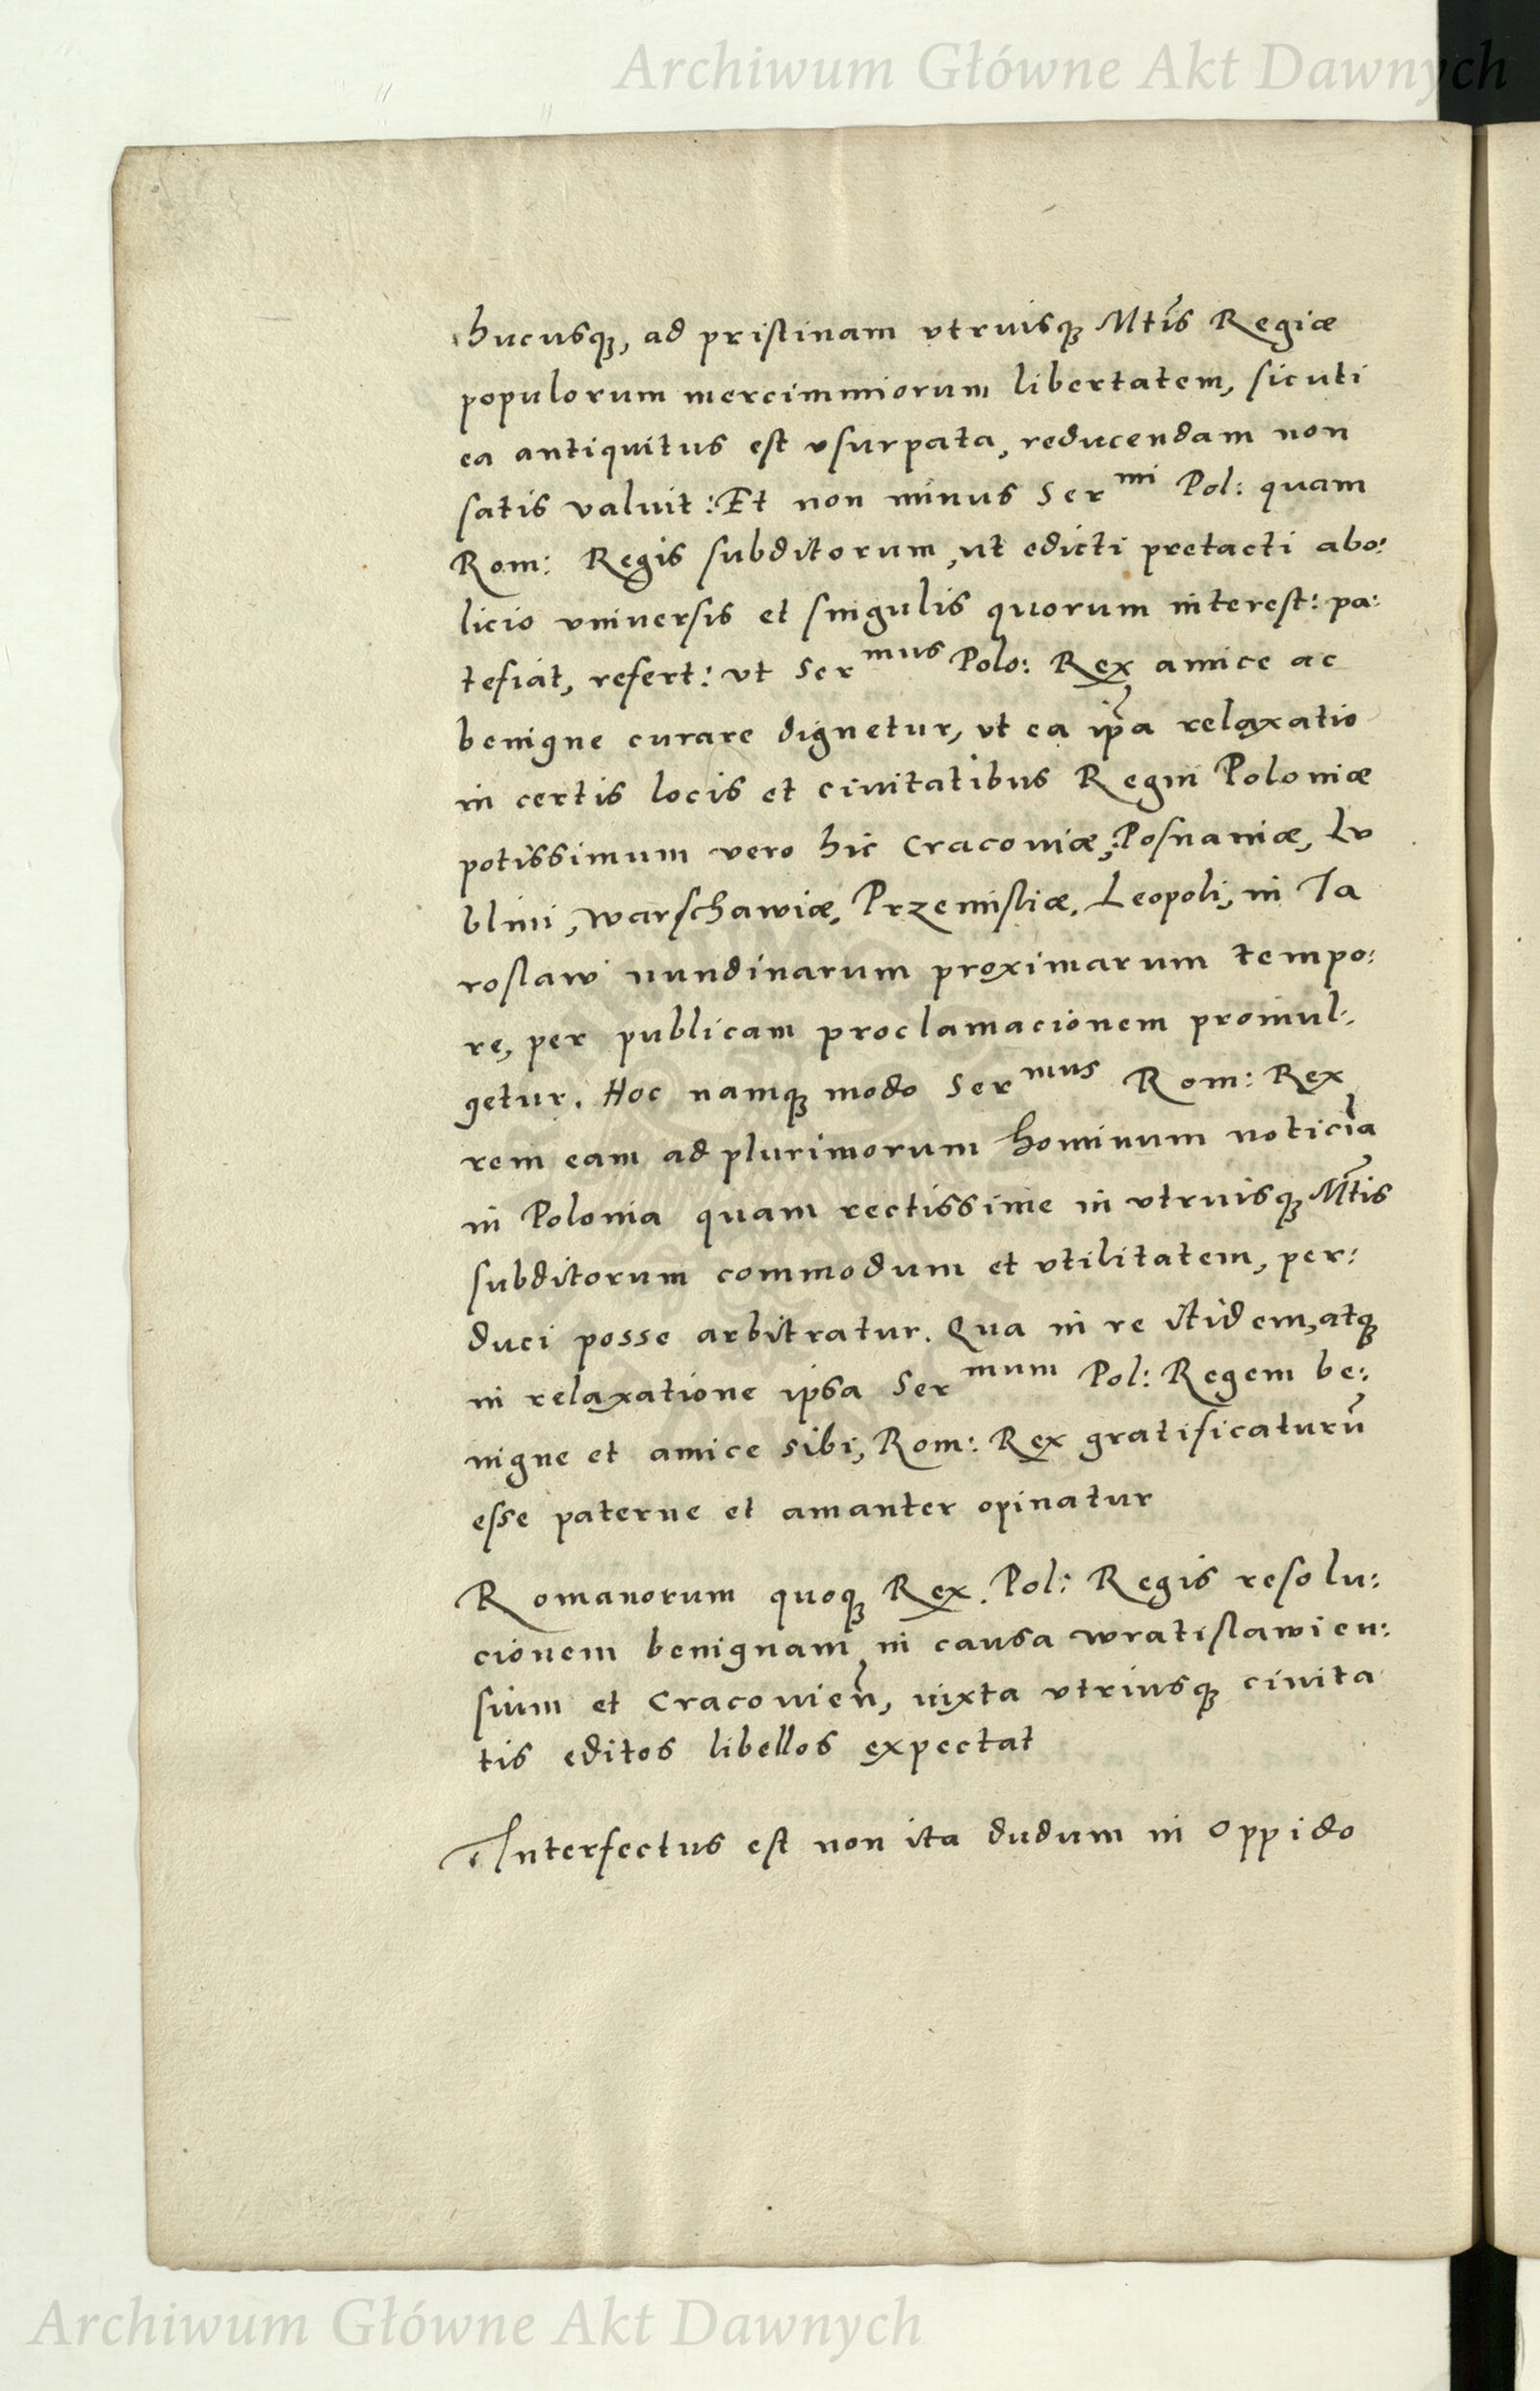 Archiwum Główne Akt Dawnych
hucusqꝫ, ad pristinam vtruisqꝫ Mtis Regiæ
populorum mercimmiorum libertatem, sicuti
ea antiquitus est vsurpata, reducendam non
satis valuit: Et non minus Ser mi Pol: quam
Rom: Regis subditorum, ut edicti pretacti abo:
licio vniuersis et singulis quorum interest: pa:
tefiat, refert: vt Ser mus Polo: Rex amice ac
benigne curare dignetur, vt ea ip̃a relaxatio
in certis locis et ciuitatibus Regni Poloniæ
potissimum vero hic Cracouiæ, Posnaniæ, Lv
blini, Warschawiæ, Przemisliæ, Leopoli, in Ia
roslaw nundinarum proximarum tempo:
re, per publicam proclamacionem promul:
getur. Hoc namqꝫ modo Ser mus Rom: Rex
rem eam ad plurimorum hominum noticiã
in Polonia quam rectissime in vtruisqꝫ Mtis
subditorum commodum et vtilitatem, per:
duci posse arbitratur. Qua in re itidem, atqꝫ
in relaxatione ipsa Ser mum Pol: Regem be:
nigne et amice sibi, Rom: Rex gratificaturũ
esse paterne et amanter opinatur
Romanorum quoqꝫ Rex. Pol: Regis resolu:
cionem benignam in causa wratislawien:
sium et Cracouien̄, iuxta vtriusqꝫ ciuita
tis editos libellos expectat
Interfectus est non ita dudum in Oppido
Archiwum Główne Akt Dawnych